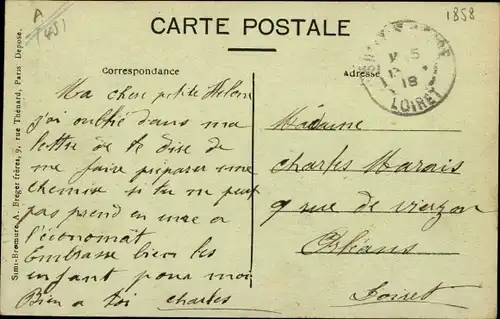 A
(45)
1858
CARTE POSTALE
Correspondance
Adresse
15
18
LOIRET
Ma chere petite Helene
j'ai oublié dans ma
lettre de te dire de
me faire préparer une
chemise si tu ne peut
pas prend en une a
l'économat
Embrasse bien les
enfant pour moi
Bien a toi Charles
Madame
Charles Marais
9 rue de vierzon
Orléans
Loiret
Simi-Bromure A. Breger frères, 9, rue Thénard, Paris Déposé.